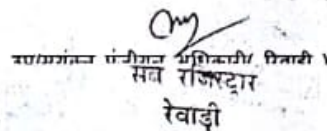 उप/सयुंक्त पंजीयन अधिकारी/ रिवाडी
सब रजिस्ट्रार
रेवाड़ी